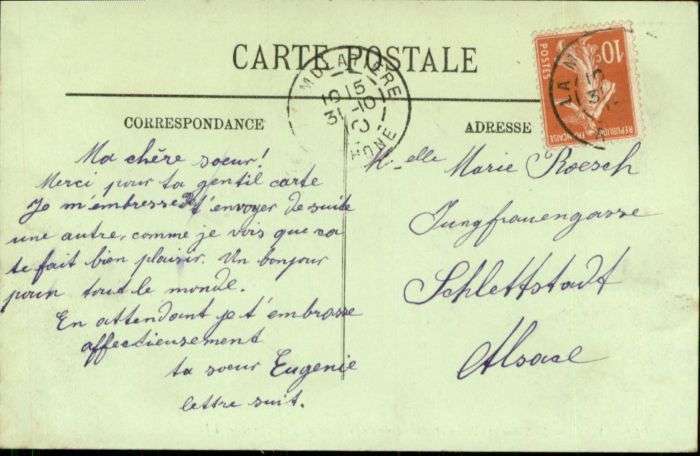 CARTE POSTALE
CORRESPONDANCE
ADRESSE
10
POSTES
LA M
10 15
31-10
RHONE
Ma chère soeur!
Merci pour ta gentil carte
Je m'embresse t'envoyer de suite
une autre, comme je vois que ca
te fait bien plaisir. Un bonjour
pour tout le monde.
En attendant je t'embrasse
affectieusement
ta soeur Eugenie
lettre suit.
Melle Marie Roesch
Jungfrauengasse
Schlettstadt
Alsace